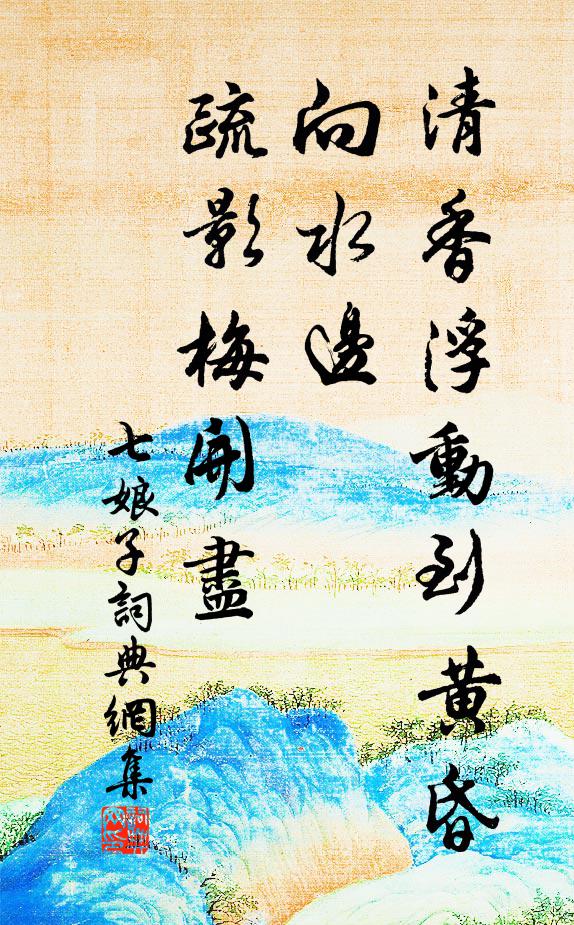 清香浮動到黃昏
向水邊
疏影梅開盡
七娘子詞典網集